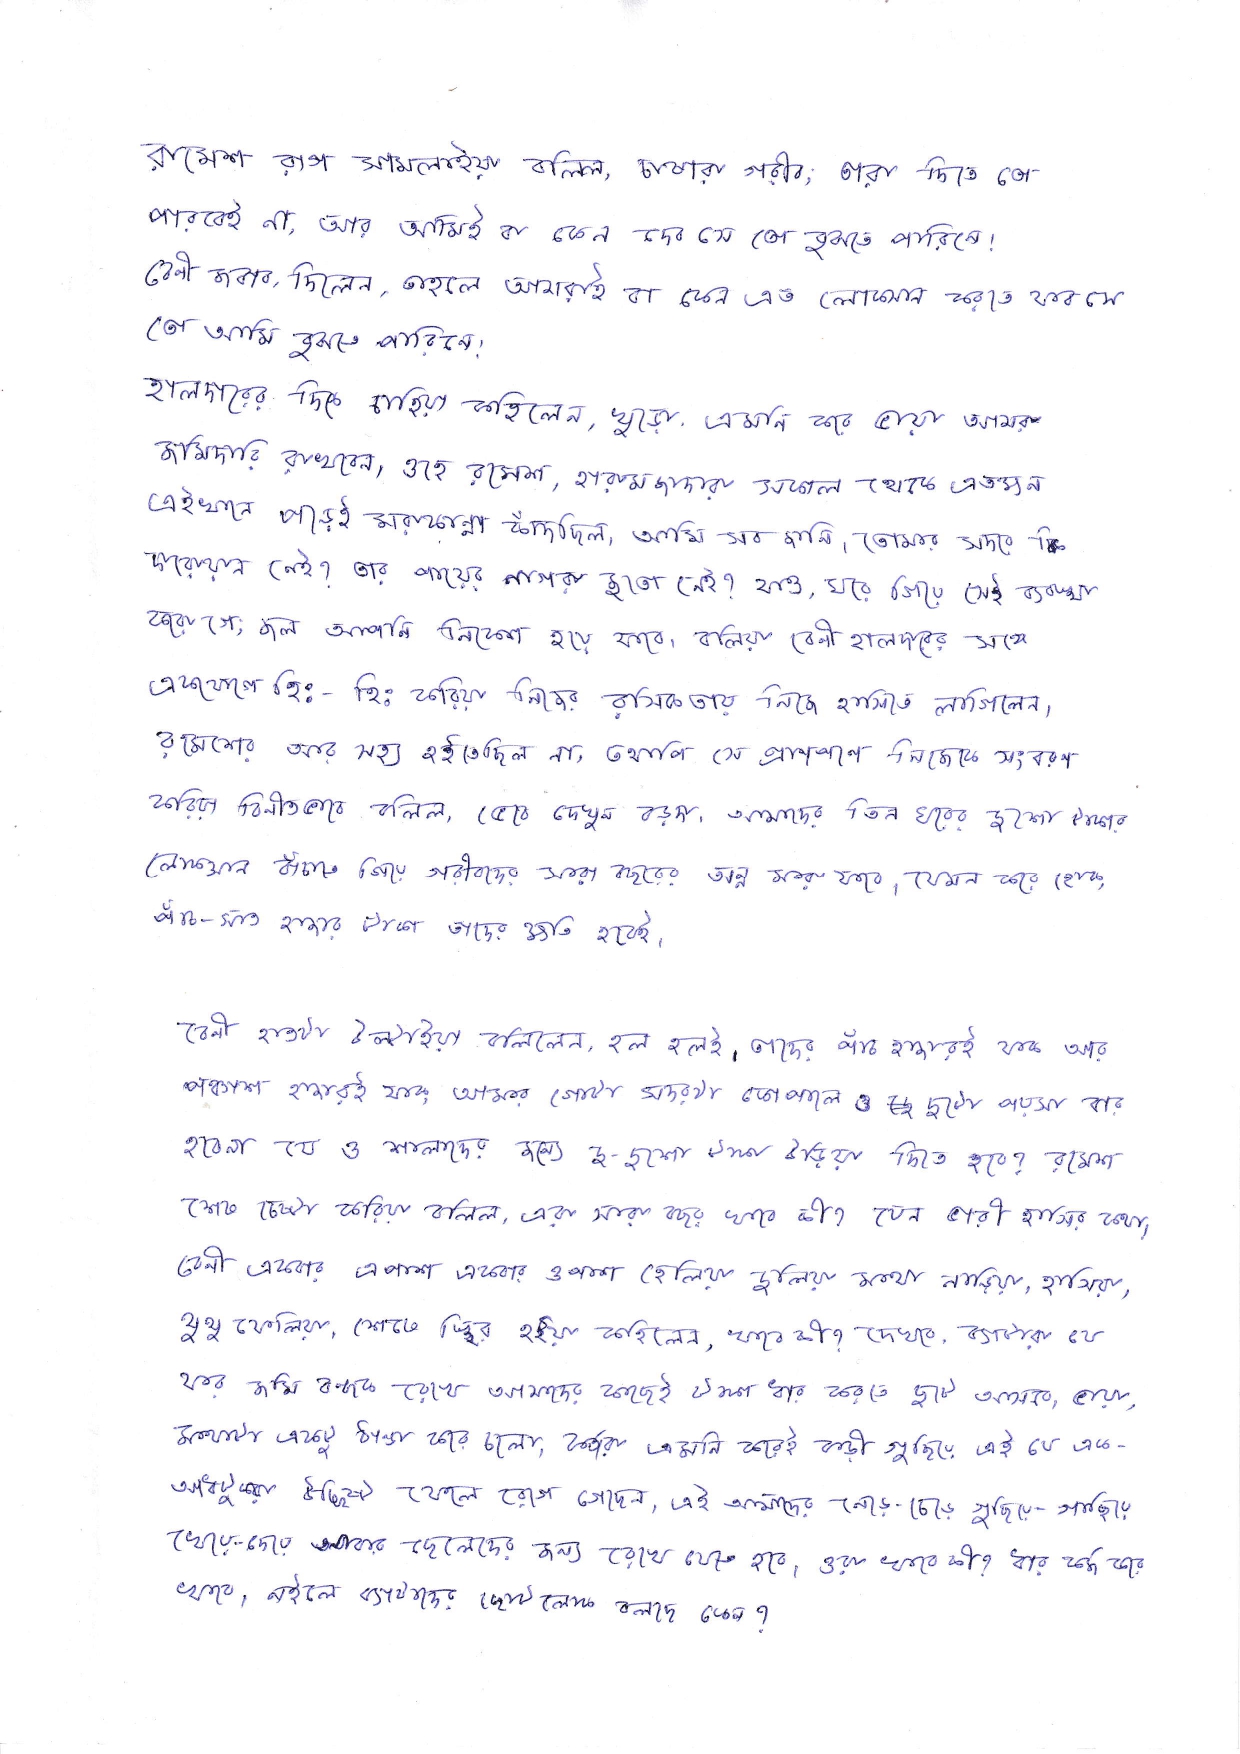 রামেশ রাগ সামলাইয়া বলিল, চাষারা গরীব; তারা দিতে তো
পারবেই না, আর আমিই বা কেন দেব সে তো বুঝতে পারিনে!
বেনী জবাব দিলেন, তাহলে আমরাই বা কেন এত লোকসান করতে যাব সে
তো আমি বুঝতে পারিনে!
হালদারের দিকে চাহিয়া কহিলেন, খুড়ো. এমনি করে ভায়া আমার
জমিদারি রাখবেন, ওহে রমেশ, হারামজাদারা সকাল থেকে এতক্ষন
এইখানে পড়েই মরাকান্না কাঁদছিল, আমি সব জানি, তোমার সদরে কি
দারোয়ান নেই? তার পায়ের নাগরা জুতো নেই? যাও, ঘরে গিয়ে সেই ব্যবস্থা
করো গে; জল আপনি নিকেশ হয়ে যাবে, বলিয়া বেনী হালদারের সঙ্গে
একযোগে হিঃ- হিঃ করিয়া নিজের রসিকতায় নিজে হাসিতে লাগিলেন,
রমেশের আর সহ্য হইতেছিল না, তথাপি সে প্রাণপণে নিজেকে সংবরণ
করিয়া বিনীতভাবে বলিল, ভেবে দেখুন বড়দা, আমাদের তিন ঘরের দুশো টাকার
লোকসান বাঁচাতে গিয়ে গরীবদের সারা বছরের অন্ন মারা যাবে, যেমন করে হোক,
পাঁচ-সাত হাজার টাকা তাদের ক্ষতি হবেই,
বেনী হাতটা উল্টাইয়া বলিলেন, হল হলই, তাদের পাঁচ হাজারই যাক আর
পঞ্চাশ হাজারই যাক, আমার গোটা সদরটা কোপালে ও দুটো পয়সা বার
হবেনা যে ও শালাদের জন্যে দু-দুশো টাকা উড়িয়া দিতে হবে? রমেশ
শেষ চেষ্টা করিয়া বলিল, এরা সারা বছর খাবে কী? যেন ভারী হাসির কথা,
বেনী একবার এপাশ একবার ওপাশ হেলিয়া দুলিয়া মাথা নাড়িয়া, হাসিয়া,
থুথু ফেলিয়া, শেষে স্থির হইয়া কহিলেন, খাবে কী? দেখবে, ব্যাটারা যে
যার জমি বন্ধক রেখে আমাদের কাছেই টাকা ধার করতে ছুটে আসবে, ভায়া,
মাথাটা একটু ঠাণ্ডা করে চলো, কর্তারা এমনি করেই বাড়ী গুছিয়ে এই যে এক-
আধটুকরা উচ্ছিষ্ট ফেলে রেখে গেছেন, এই আমাদের নেড়ে-চেড়ে গুছিয়ে-গাছিয়ে
খেয়ে-দেয়ে আবার ছেলেদের জন্য রেখে যেতে হবে, ওরা খাবে কী? ধার কর্জ করে
খাবে, নইলে ব্যাটাদের ছোটলোক বলছে কেন?